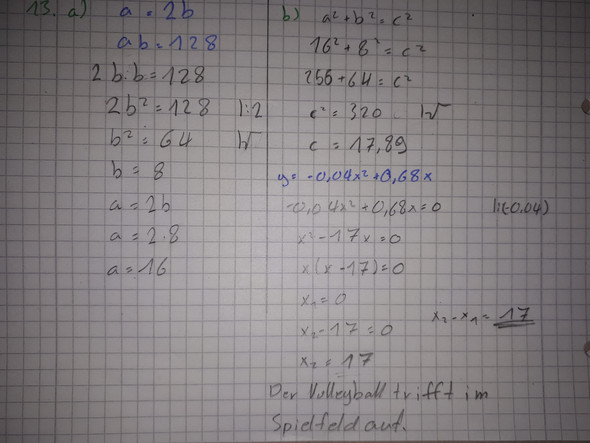 13. a) a = 2b
ab = 128
2b·b = 128
2b² = 128 |:2
b² = 64 |√
b = 8
a = 2b
a = 2·8
a = 16
b) a² + b² = c²
16² + 8² = c²
256 + 64 = c²
c² = 320 |√
c = 17,89
y = -0,04x² + 0,68x
-0,04x² + 0,68x = 0 |:(-0,04)
x² - 17x = 0
x(x - 17) = 0
x₁ = 0
x₂ - 17 = 0
x₂ = 17
x₂ - x₁ = 17
Der Volleyball trifft im
Spielfeld auf.